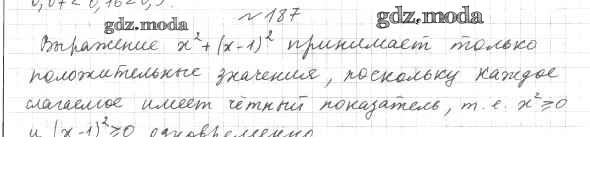 № 187
gdz.moda
gdz.moda
Выражение x² + (x-1)² принимает только
положительные значения, поскольку каждое
слагаемое имеет чётный показатель, т.е. x² ≥ 0
и (x-1)² ≥ 0 одновременно